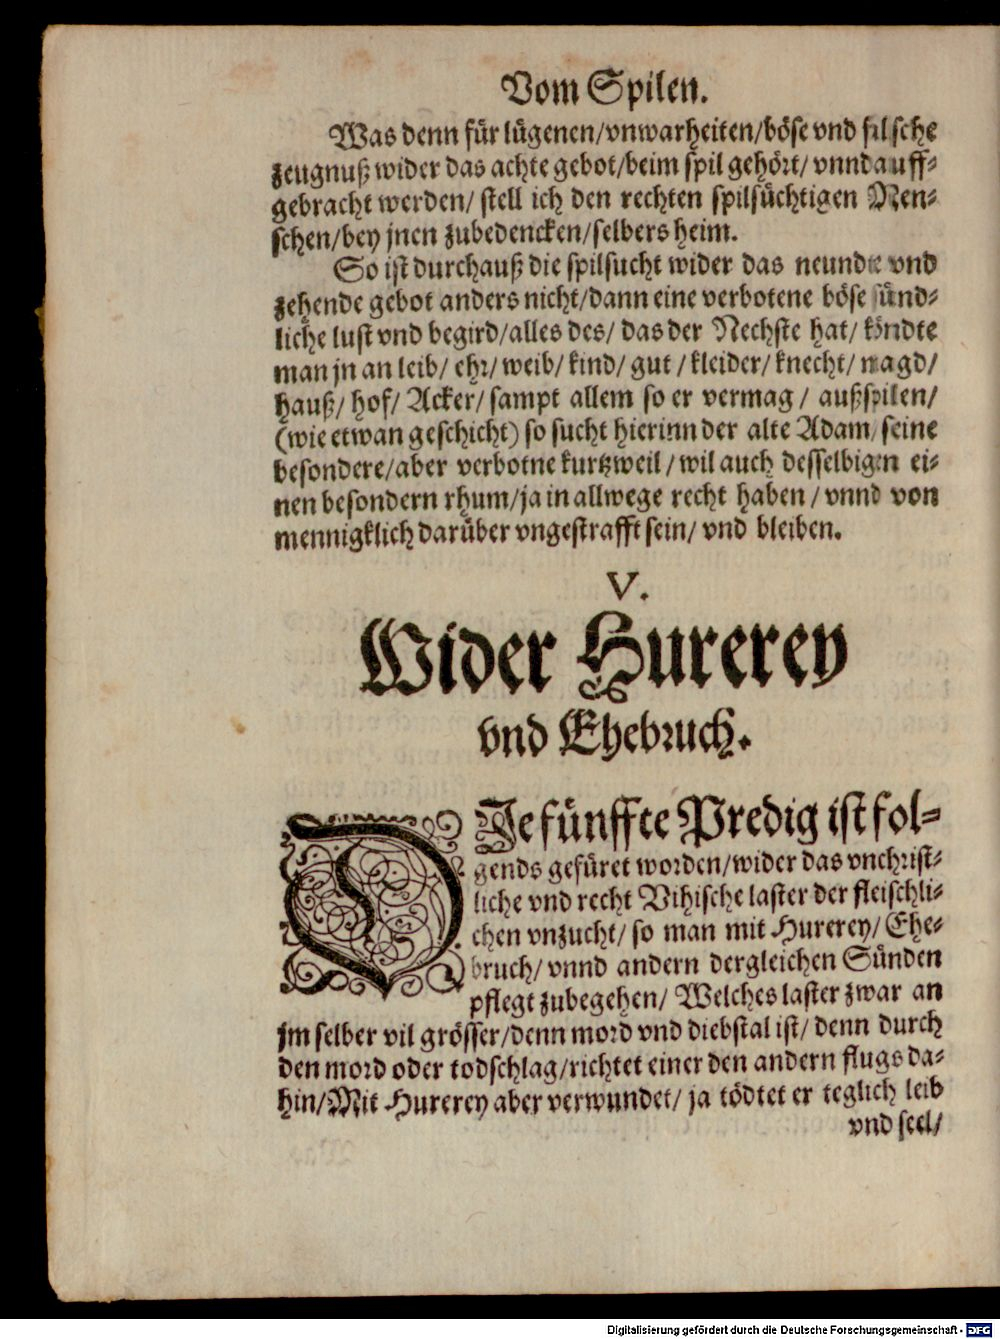 Vom Spilen.
Was denn für lügenen/vnwarheiten/böse vnd falsche
zeugnuß wider das achte gebot/beim spil gehört/ vnnd auff-
gebracht werden/ stell ich den rechten spilsüchtigen Men-
schen/bey jnen zubedencken/selbers heim.
So ist durchauß die spilsucht wider das neundte vnd
zehende gebot anders nicht/dann eine verbotene böse sünd-
liche lust vnd begird/alles des/ das der Nechste hat/ köndte
man jn an leib/ ehr/ weib/ kind/ gut /kleider/ knecht/ magd/
hauß/ hof/ Acker/ sampt allem so er vermag / außspilen/
(wie etwan geschicht) so sucht hierinn der alte Adam/ seine
besondere/aber verbotne kurtzweil / wil auch desselbigen ei-
nen besondern rhum/ja in allwege recht haben / vnnd von
mennigklich darüber vngestrafft sein/ vnd bleiben.
V.
Wider Hurerey
vnd Ehebruch.
DJe fünffte Predig ist fol-
gends gefüret worden/wider das vnchrist-
liche vnd recht Vihische laster der fleischli-
chen vnzucht/ so man mit Hurerey/ Ehe-
bruch/ vnnd andern dergleichen Sünden
pflegt zubegehen/ Welches laster zwar an
jm selber vil grösser/denn mord vnd diebstal ist/ denn durch
den mord oder todschlag/richtet einer den andern flugs da-
hin/Mit Hurerey aber verwundet/ ja tödtet er teglich leib
vnd seel/
Digitalisierung gefördert durch die Deutsche Forschungsgemeinschaft - DFG